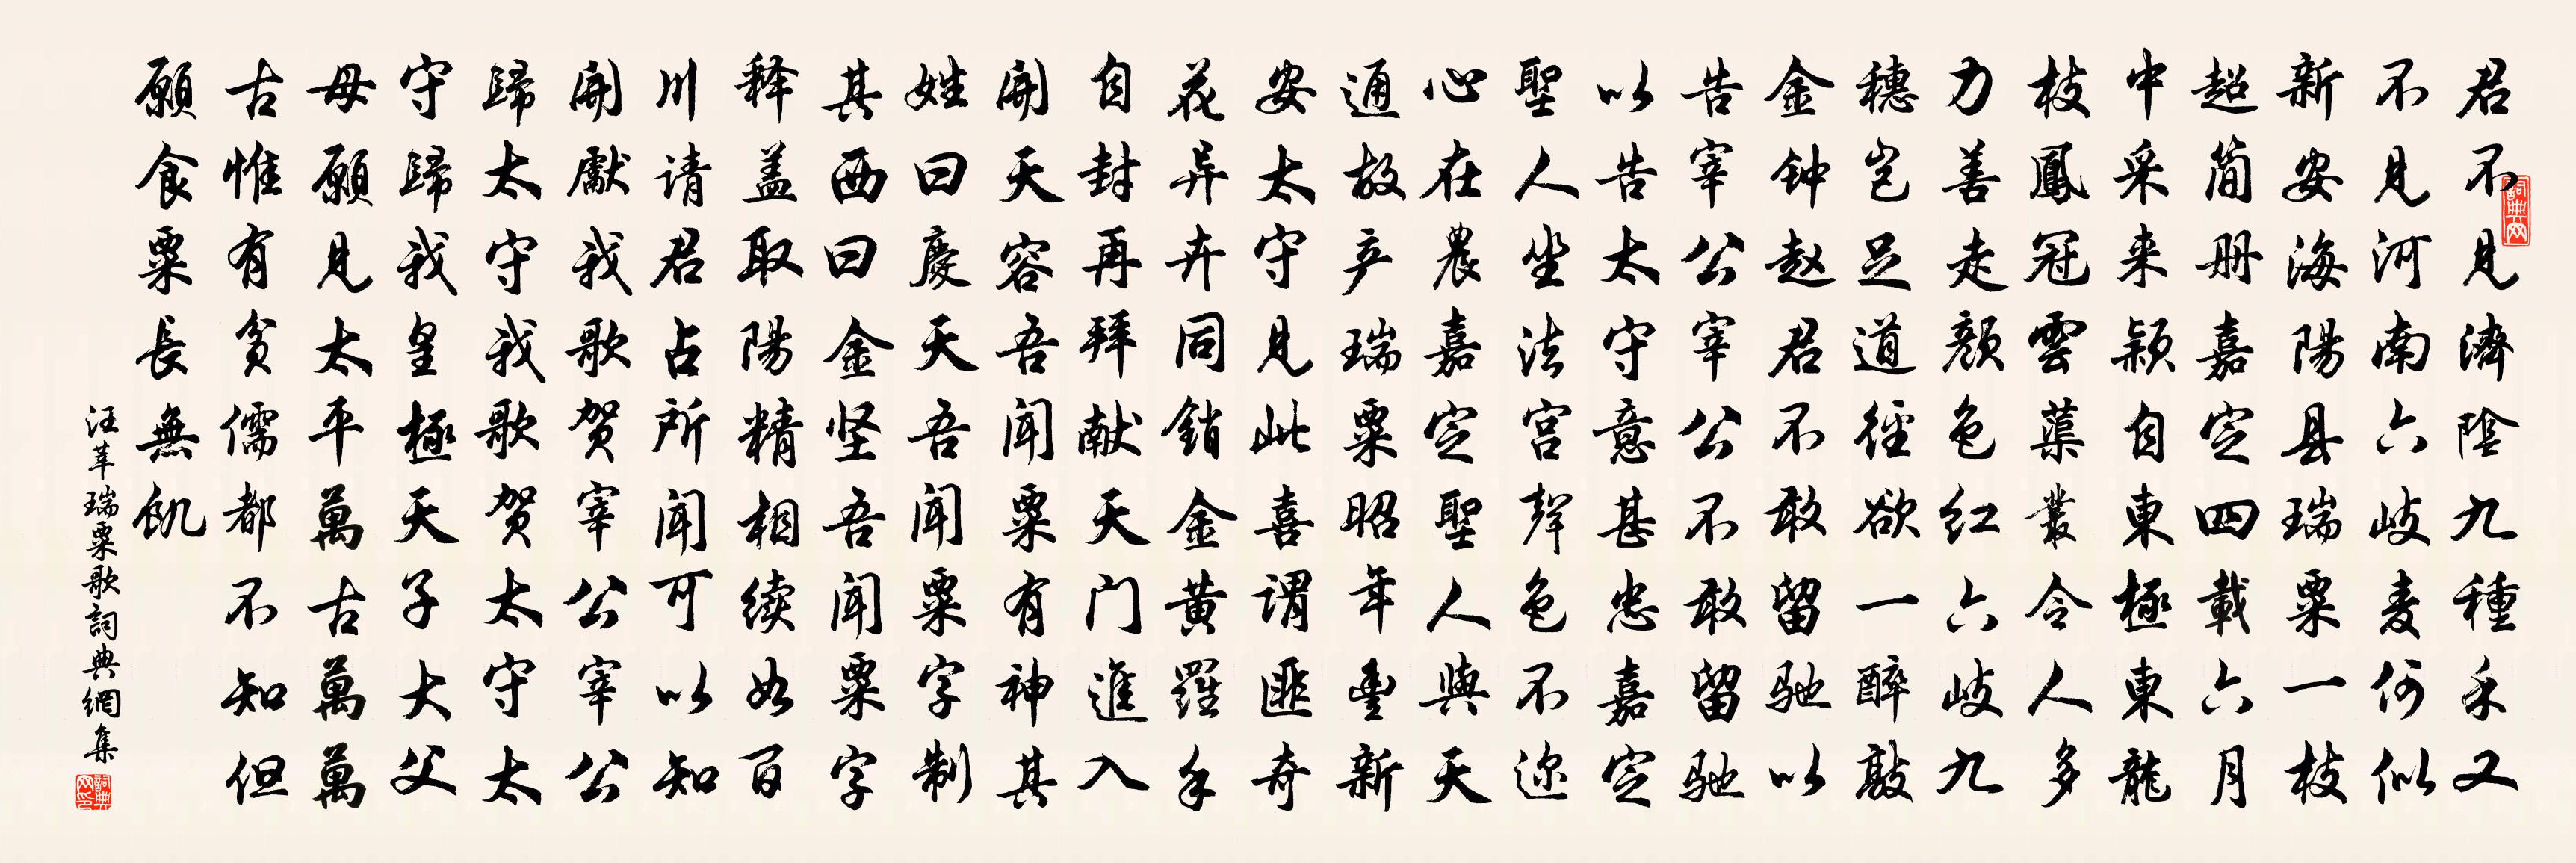 君不見濟陰九種禾又
不見河南六岐麦何似
新安海陽县瑞粟一枝
超简册嘉定四載六月
中采来颖自東極東龍
枝鳳冠雲蕖叢令人多
力善走颜色红六岐九
穗岂足道径欲一醉敲
金钟赵君不敢留驰以
告宰公宰公不敢留驰
以告太守意甚忠嘉定
聖人坐法宫聲色不迩
心在農嘉定聖人與天
通故产瑞粟昭年豊新
安太守見此喜謂匪奇
花异卉同銷金黄羅手
自封再拜献天门進入
開天容吾闻粟有神其
姓曰慶天吾闻粟字制
其西曰金坚吾闻粟字
释盖取陽精相续如百
川请君占所闻可以知
開獻我歌贺宰公宰公
歸太守我歌贺太守太
守歸我皇極天子大父
母願見太平萬古萬萬
古惟有貧儒都不知但
願食粟長無飢
汪莘瑞粟歌詞典網集
詞典网
詞典网印